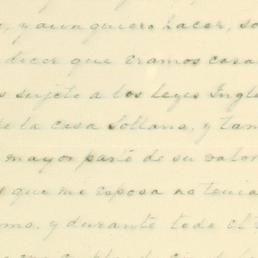 , y aun quiero hacer, so
decir que eramos casa
s sujeto a las leyes Ingle
de la casa Sollans, y tam
mayor parte de su valor
que me esposa no tenia
y durante todo el